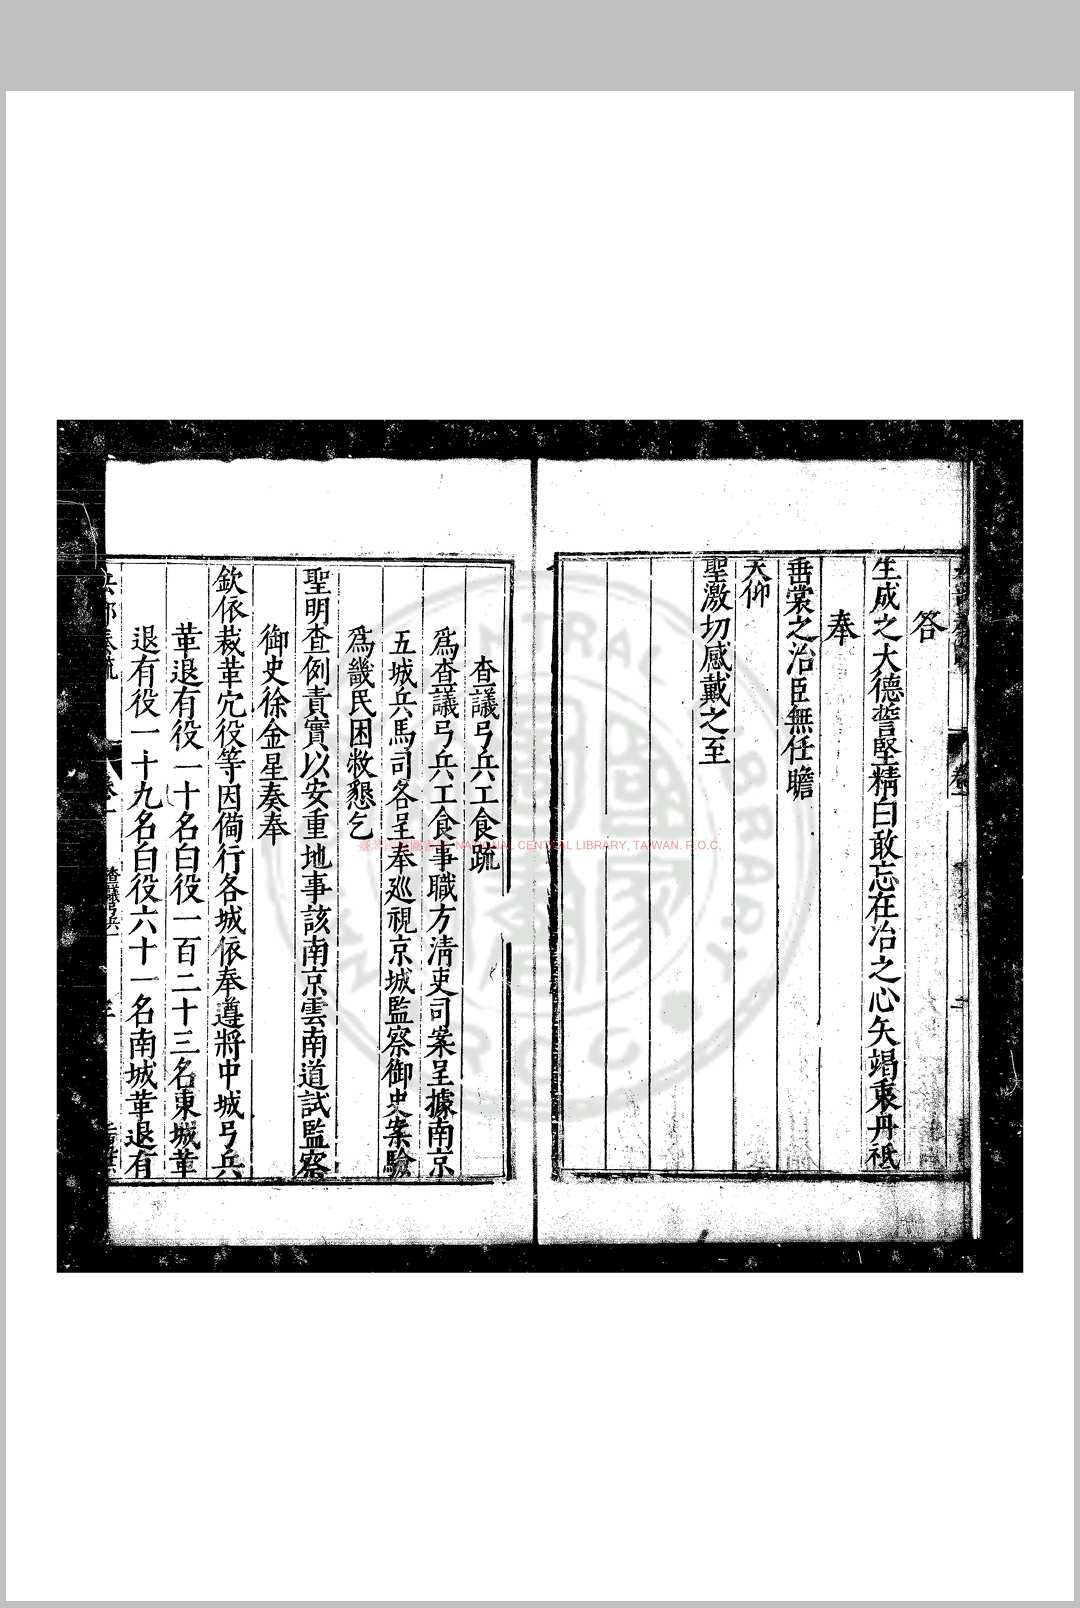 答
生成之大德誓堅精白敢忘在冶之心矢竭衷丹祗
奉
垂裳之治臣無任瞻
天仰
聖激切感戴之至
查議弓兵工食疏
爲查議弓兵工食事職方清吏司案呈據南京
五城兵馬司各呈奉巡視京城監察御史案驗
爲畿民困敝懇乞
聖明查例責實以安重地事該南京雲南道試監察
御史徐金星奏奉
欽依裁革冗役等因備行各城依奉遵將中城弓兵
革退有役一十名白役一百二十三名東城革
退有役一十九名白役六十一名南城革退有
兵部奏疏
卷一
查議弓兵
臺灣 NATIONAL CENTRAL LIBRARY, TAIWAN. R.O.C.